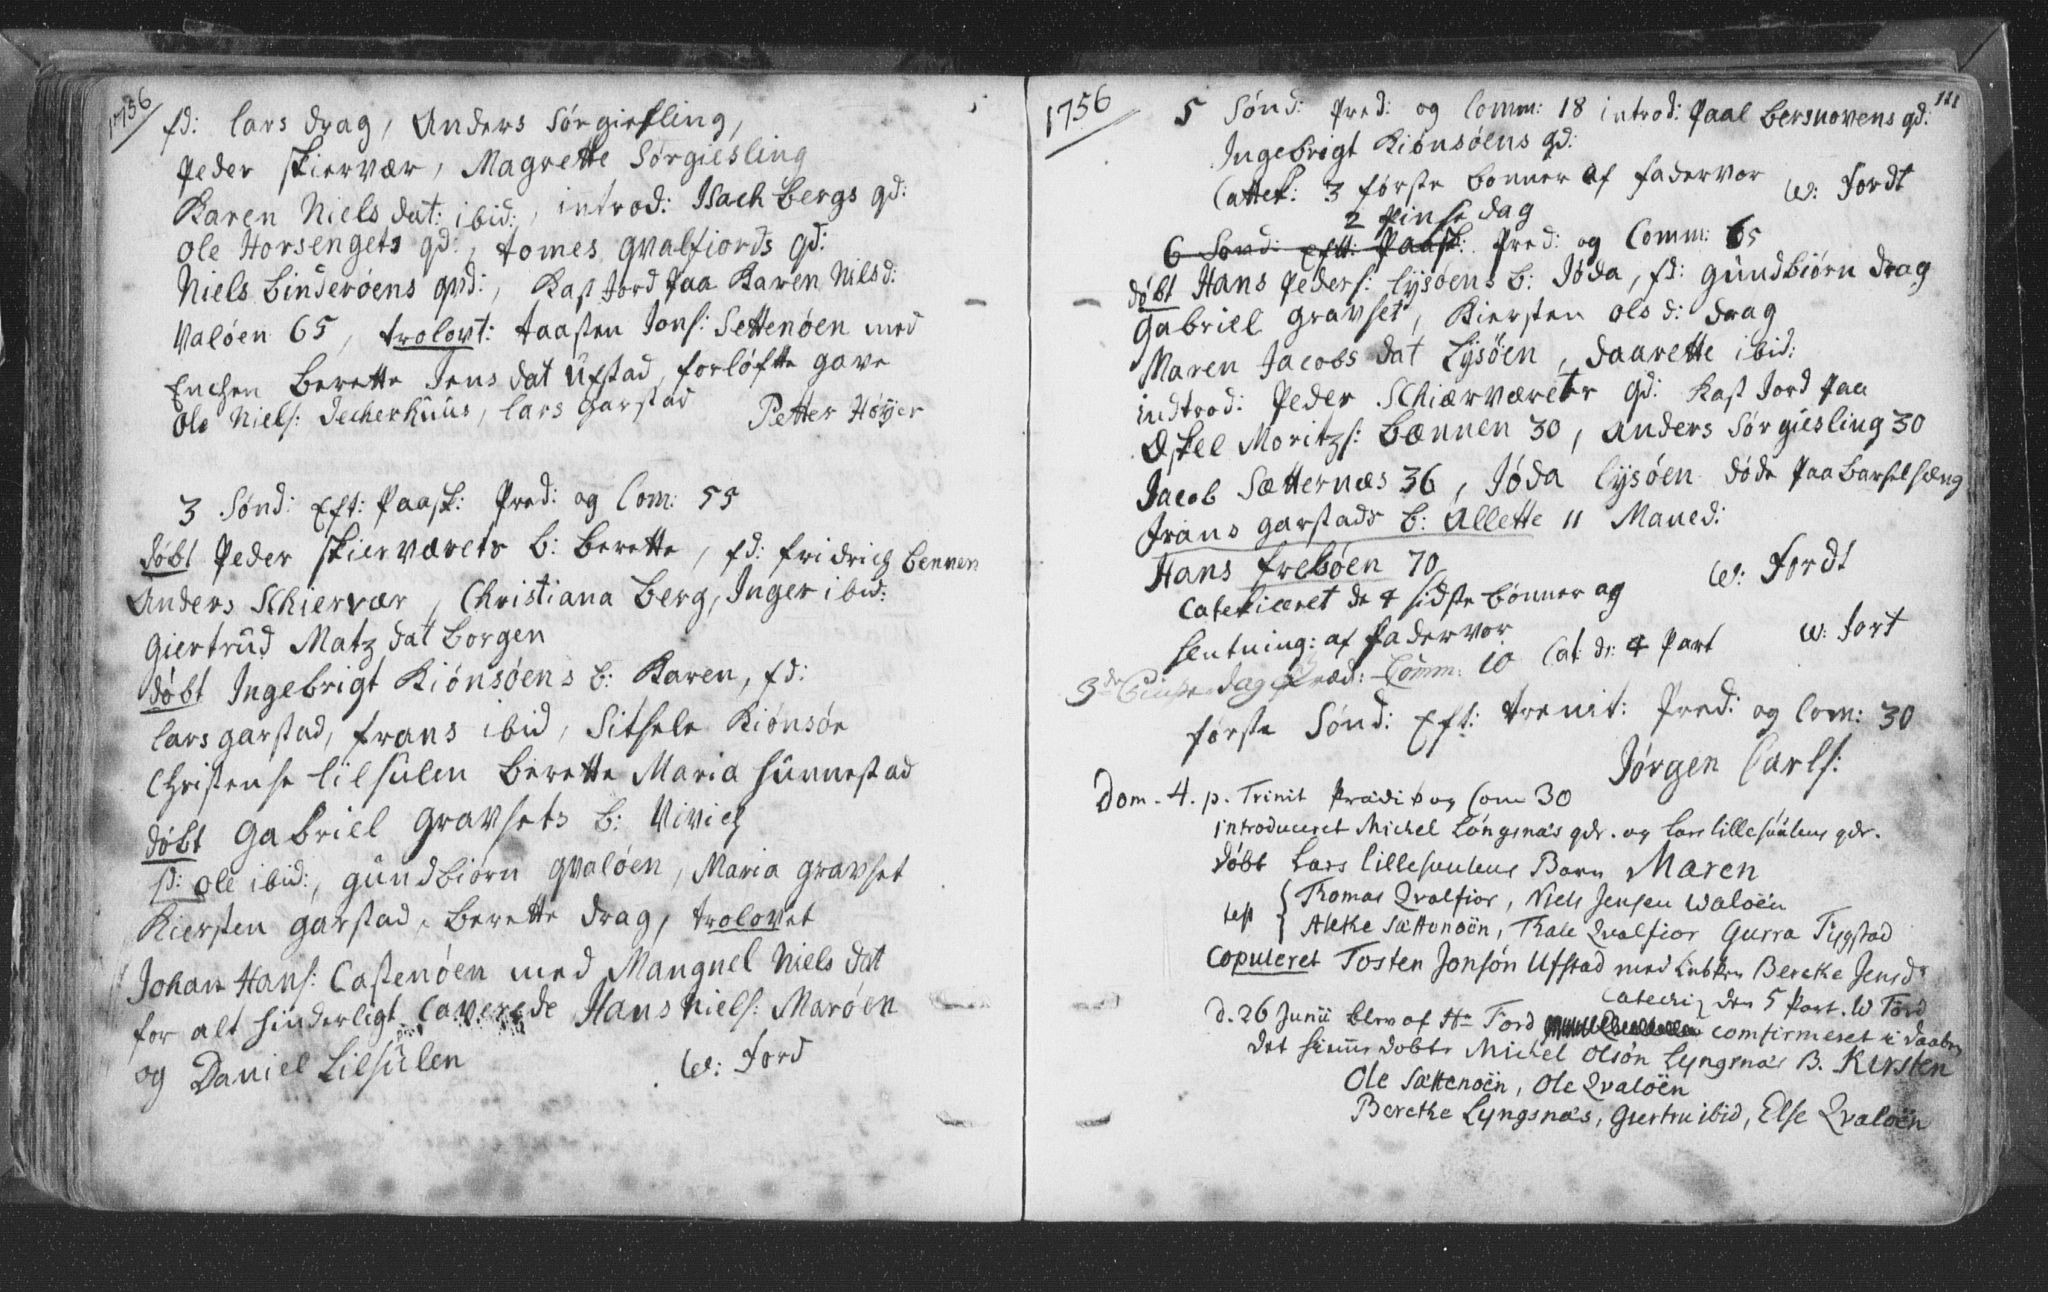 1756
fd: Lars Drag, Anders Sørgiesling,
Peder Skiervær, Magrette Sørgiesling
Karen Niels dat: ibid:, introd: Isach Bergs qd:
Ole Horsengets qd:, Tomes qvalfiords qd:
Niels Binderøens qvd:, Kast Jord paa Karen Nilsd:
Valøen 65, trolovt: Taasten Jons: Settenøen med
Enchen Berette Jens dat Ufstad, forløftte gave
Ole Niels: Decherhuus, Lars Garstad Petter Høyer
3 Sønd: Eft: Paask: Pred: og Com: 55
døbt Peder Skierværets b: Berette, fd: Fridrich Bennen
Anders Schiervær, Christiana Berg, Inger ibid:
Giertrud Matz dat Borgen
døbt Ingebrigt Kiønsøens b: Karen, fd:
Lars Garstad, Frans ibid, Sitsele Kiønsøe
Christense Lilsulen Berette Maria Sunnestad
døbt Gabriel Gravsets b: Vivich
fd: Ole ibid:, Gundbiørn qvaløen, Maria Gravset
Kiersten Garstad, Berette Drag, trolovet
Johan Hans: Castenøen med Mangnel Niels dat
for alt hinderligt Caverede Hans Niels: Marøen
og Daniel Lilsulen W: Ford
1756
111
5 Sønd: Pred: og Comm: 18 introd: Paal Bersnovens qd:
Ingebregt Kiønsøens qd:
Cattek: 3 første bønner af fadervor W: Fordt
2 Pinse dag
6 Sønd: Eft: Paask: Pred: og Comm: 65
døbt Hans Peders: Lysøens b: Jøda, fd: Gundbiørn Drag
Gabriel Gravset, Kiersten Ols d: Drag
Maren Jacobs dat Lysøen, Daarette ibid:
indtrod: Peder Schiærværets qd: Kast Jord paa
Eskel Moritzs: Bænnen 30, Anders Sørgiesling 30
Jacob Sætternæs 36, Jøda Lysøen døde paa barselsæng
Frans Garstads b: Allette 11 Maned:
Hans Frebøen 70 W: Fordt
Catekiceret de 4 sidste bønner og
slutning: af Fadervor Cat: d: 4 Part W: Fort
3de Pinse dag Præd: Comm: 10
første Sønd: Eft: Trenit: Pred: og Com: 30
Jørgen Carls:
Dom. 4. p. Trinit Prædik og Com 30
introduceret Michel Løngsnæs qdr. og Lars Lillesuulens qdr.
Døbt Lars Lillesuulens Barn Maren
test { Thomas Qvalfior, Niels Jensen Waløen
Aleke Sættenøen, Thale Qvalfior Gurra Tygstad
Copuleret Tosten Jonsøn Ufstad med Enken Bereke Jensdr
Catechiz den 5 Part. W Ford
d. 26 Junii blev af Hr Ford comfirmeret i daaben
det hiemmedøbte Michel Olsøn Lyngsnæs B. Kirsten
Ole Sættenøen, Ole Qvaløen
Bereke Lyngsnæs, Giertru ibid, Else Qvaløen